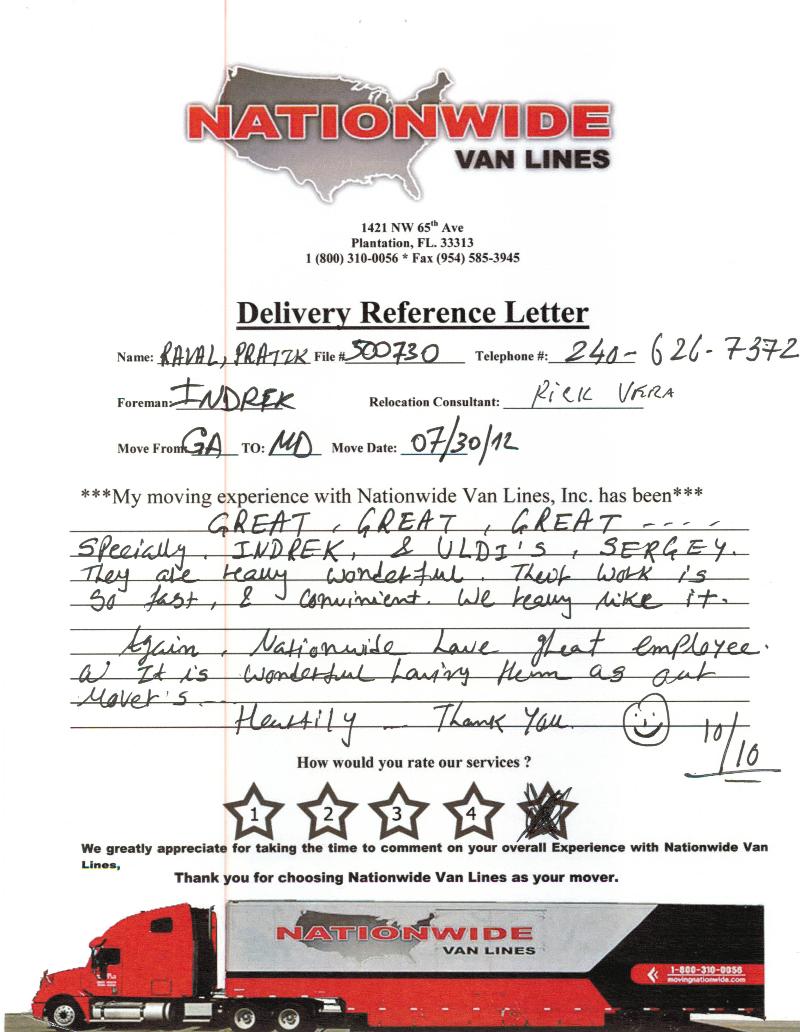 NATIONWIDE
VAN LINES
1421 NW 65th Ave
Plantation, FL. 33313
1 (800) 310-0056 * Fax (954) 585-3945
Delivery Reference Letter
Name: RAVAL, PRATIK File # 500730 Telephone #: 240-626-7372
Foreman: INDREK Relocation Consultant: Rick VERA
Move From: GA TO: MD Move Date: 07/30/12
***My moving experience with Nationwide Van Lines, Inc. has been***
GREAT, GREAT, GREAT ----
Specially, INDREK, & ULDI'S, SERGEY.
They are really wonderful. Their work is
So fast, & convinient. We really like it.
Again, Nationwide have great employee.
It is wonderful having them as our
Mover's ---
Heartily -- Thank You.
10/10
How would you rate our services ?
1 2 3 4
We greatly appreciate for taking the time to comment on your overall Experience with Nationwide Van
Lines,
Thank you for choosing Nationwide Van Lines as your mover.
NATIONWIDE
VAN LINES
1-800-310-0056
movingnationwide.com